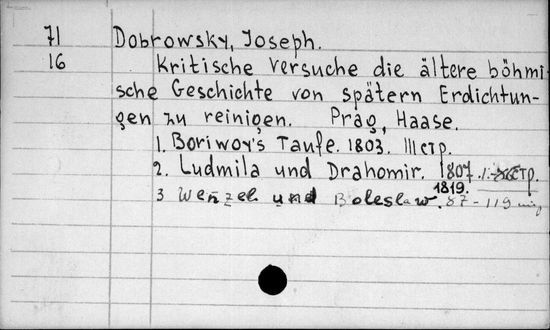 71 Dobrowsky, Joseph.
16 Kritische Versuche die ältere böhmi-
sche Geschichte von spätern Erdichtun-
gen zu reinigen. Prag, Haase.
1. Boriwoy's Taufe. 1803. 111 стр.
2. Ludmila und Drahomir. 1807. стр.
3 Wenzel und Boleslaw. 1819. 87-119